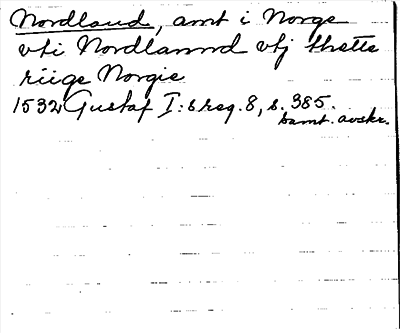 Nordland, amt i Norge
vti Nordlannd vtj thette
riige Norgie
1532 Gustaf I:s reg. 8, s. 385.
samt. avskr.